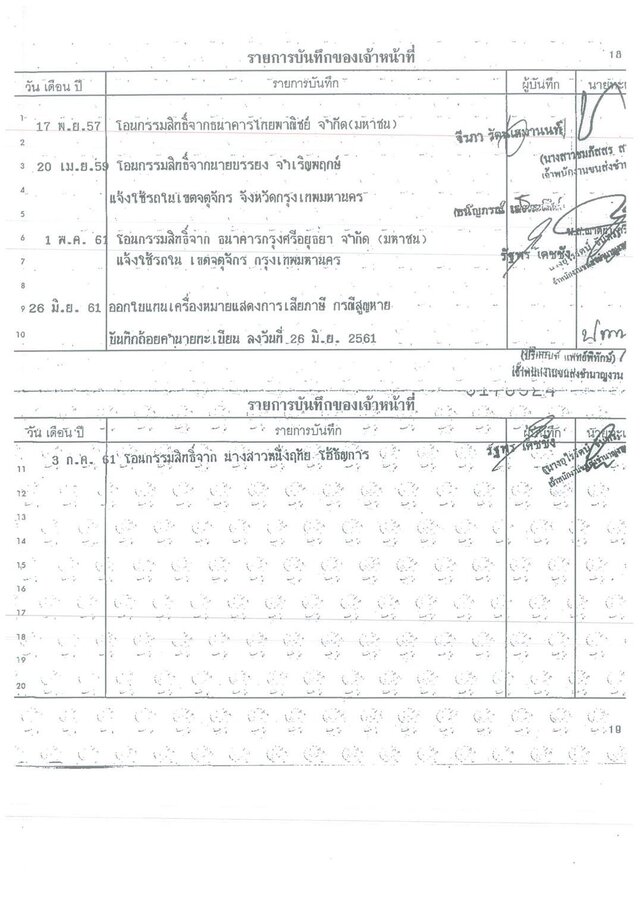 รายการบันทึกของเจ้าหน้าที่ 18
วัน เดือน ปี รายการบันทึก ผู้บันทึก
1
17 พ.ย.57 โอนกรรมสิทธิ์จากธนาคารไทยพาณิชย์ จำกัด(มหาชน)
2
3 20 เม.ย.59 โอนกรรมสิทธิ์จากนายบรรยง จำเริญพฤกษ์
4 แจ้งใช้รถในเขตจตุจักร จังหวัดกรุงเทพมหานคร
5
6 1 พ.ค. 61 โอนกรรมสิทธิ์จาก ธนาคารกรุงศรีอยุธยา จำกัด (มหาชน)
7 แจ้งใช้รถใน เขตจตุจักร กรุงเทพมหานคร รัฐพร เดชชัง
8
9 26 มิ.ย. 61 ออกใบแทนเครื่องหมายแสดงการเสียภาษี กรณีสูญหาย
10 บันทึกถ้อยคำนายทะเบียน ลงวันที่ 26 มิ.ย. 2561
รายการบันทึกของเจ้าหน้าที่
วัน เดือน ปี รายการบันทึก ผู้บันทึก
11 3 ก.ค. 61 โอนกรรมสิทธิ์จาก นางสาวหนึ่งฤทัย โอ้ธัญการ รัฐพร เดชชัง
12
13
14
15
16
17
18
19
20
19